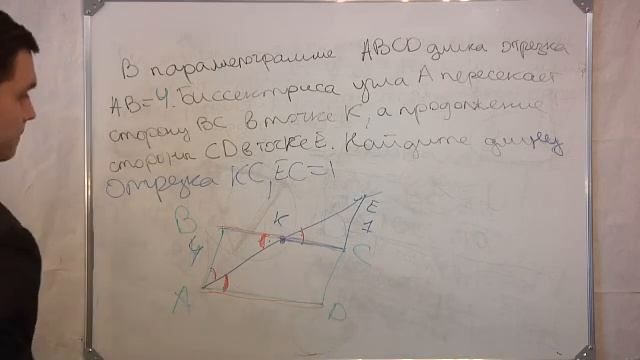 В параллелограмме ABCD длина отрезка
AB=4. Биссектриса угла A пересекает
сторону BC в точке K, а продолжение
стороны CD в точке E. Найдите длину
отрезка KC, EC=1
B K E
4 1
C
A D